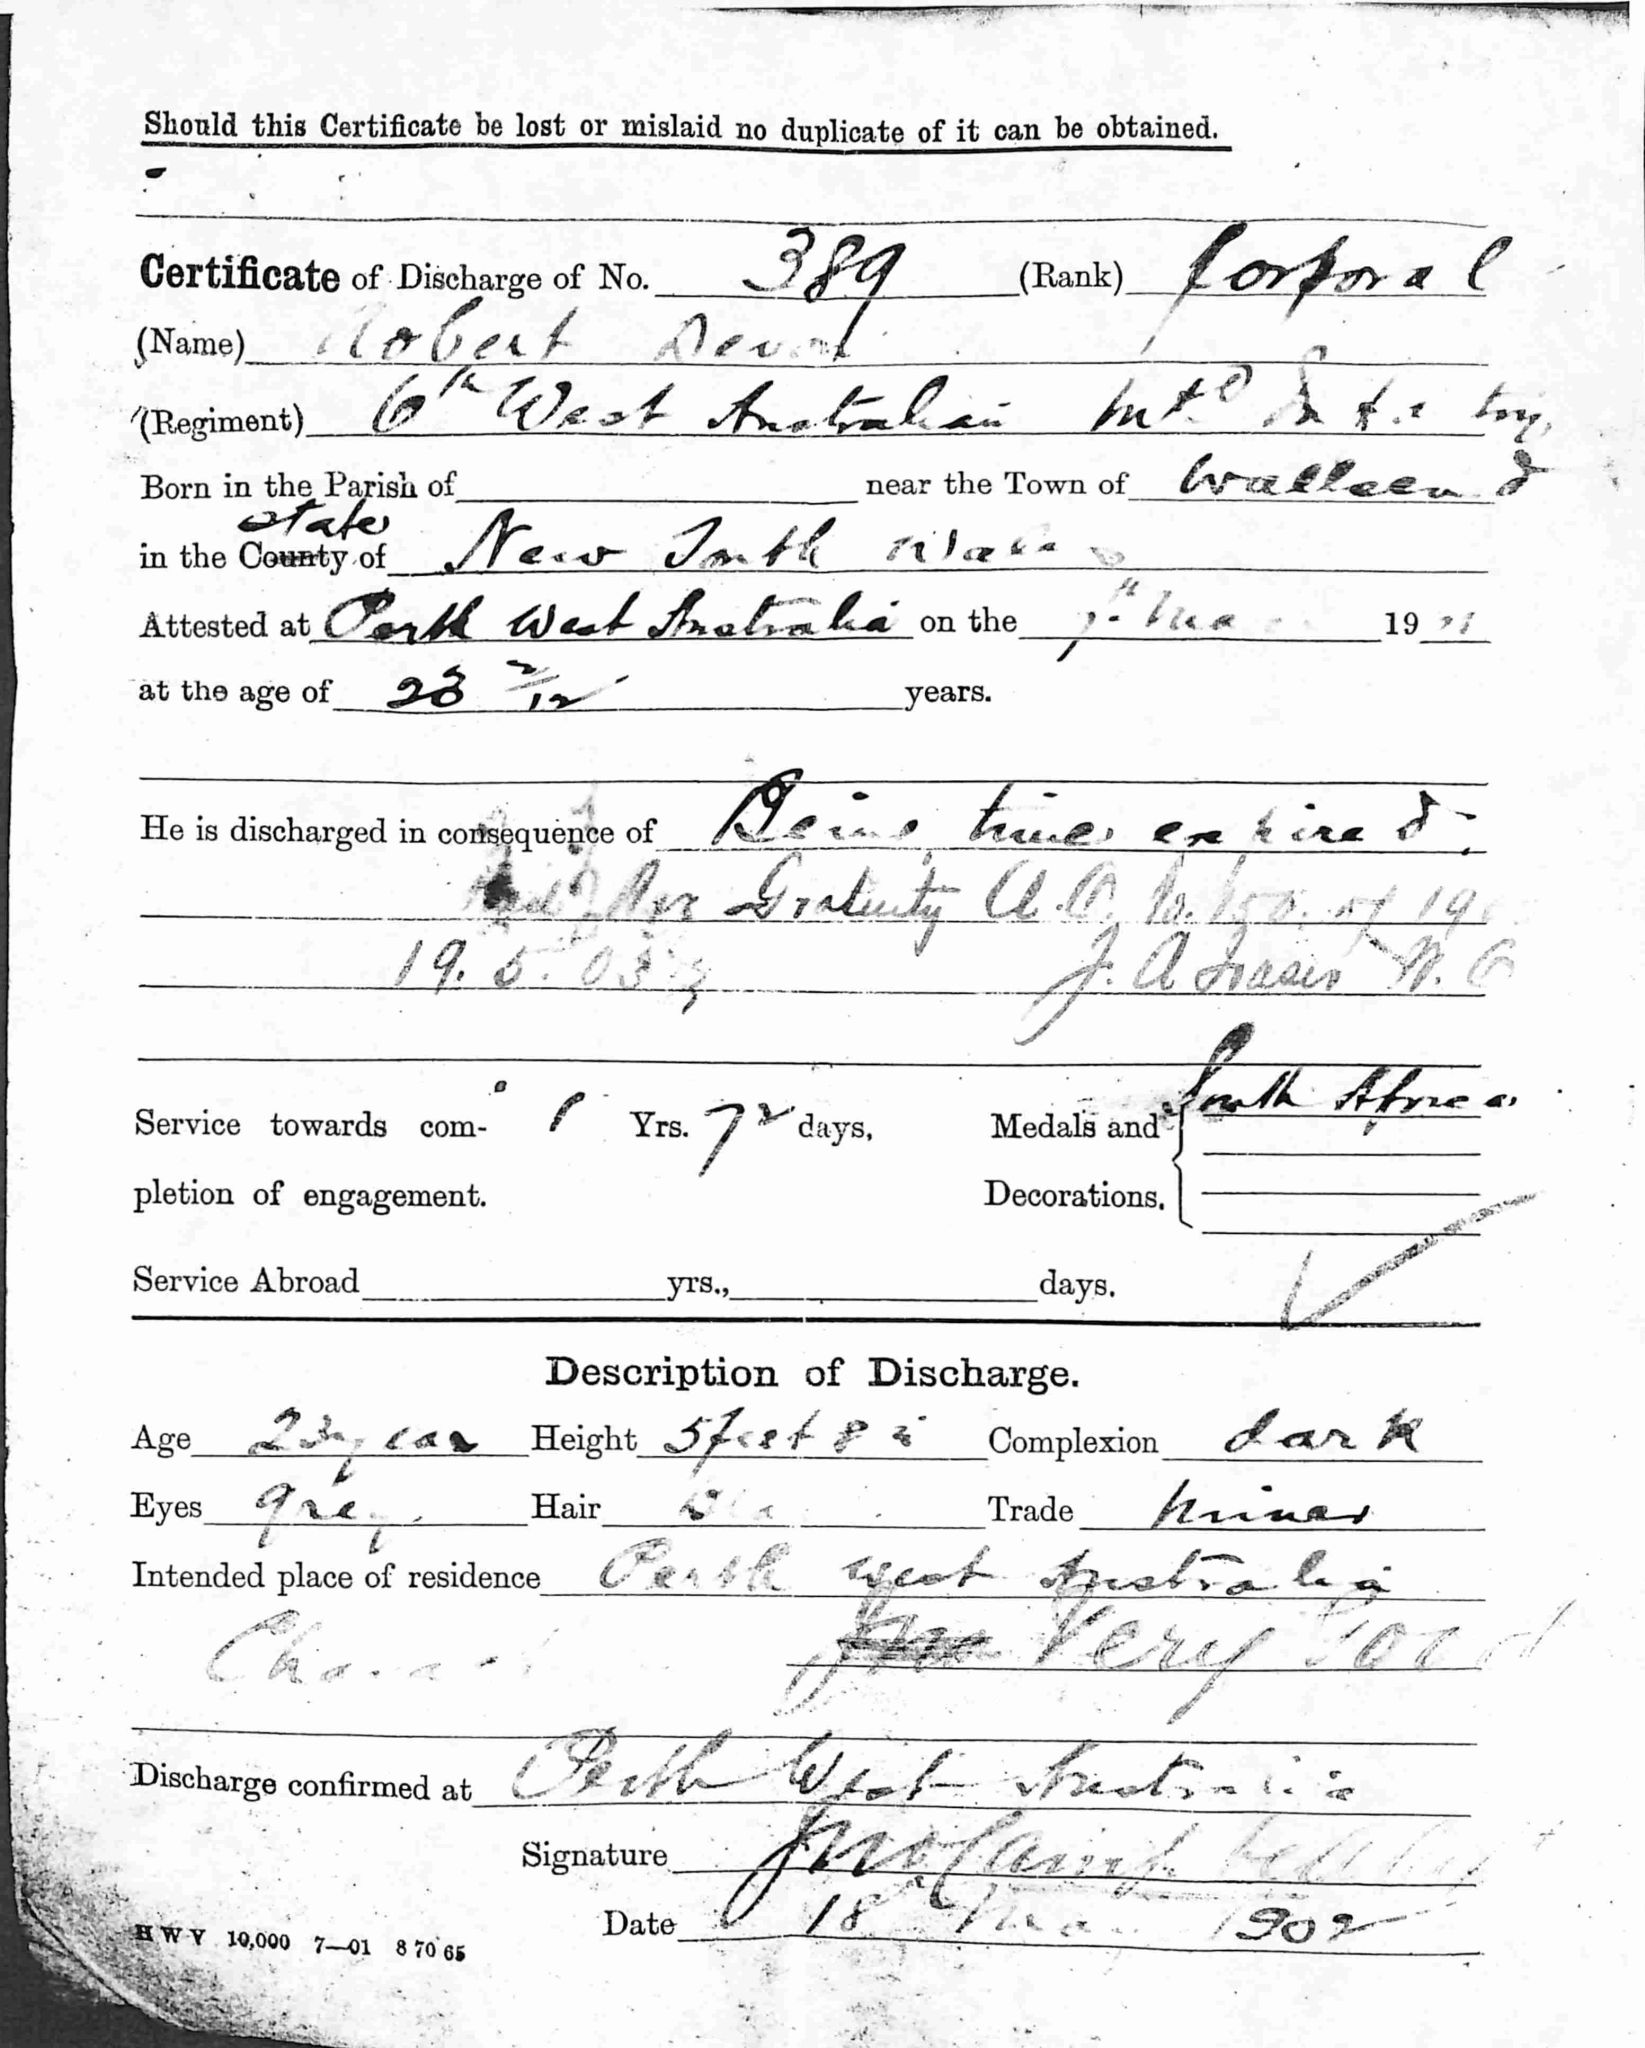 Should this Certificate be lost or mislaid no duplicate of it can be obtained.
Certificate of Discharge of No. 389 (Rank) Corporal
(Name) Robert
(Regiment) 6th West Australian Mtd Infantry
Born in the Parish of near the Town of Wallsend
state
in the County of New South Wales
Attested at Perth West Australia on the 7th 19
at the age of 23 2/12 years.
He is discharged in consequence of Being time expired;
War Gratuity A.O. of 190
19. 5. 03 J. A. Fraser
Service towards com- 1 Yrs. 72 days, Medals and South Africa
pletion of engagement. Decorations.
Service Abroad yrs., days.
Description of Discharge.
Age 23 year Height 5 feet 8 in Complexion dark
Eyes grey Hair Trade Miner
Intended place of residence Perth West Australia
Very Good
Discharge confirmed at Perth West Australia
Signature Jno Campbell
Date 18th May 1902
H W V 10,000 7—01 8 70 65